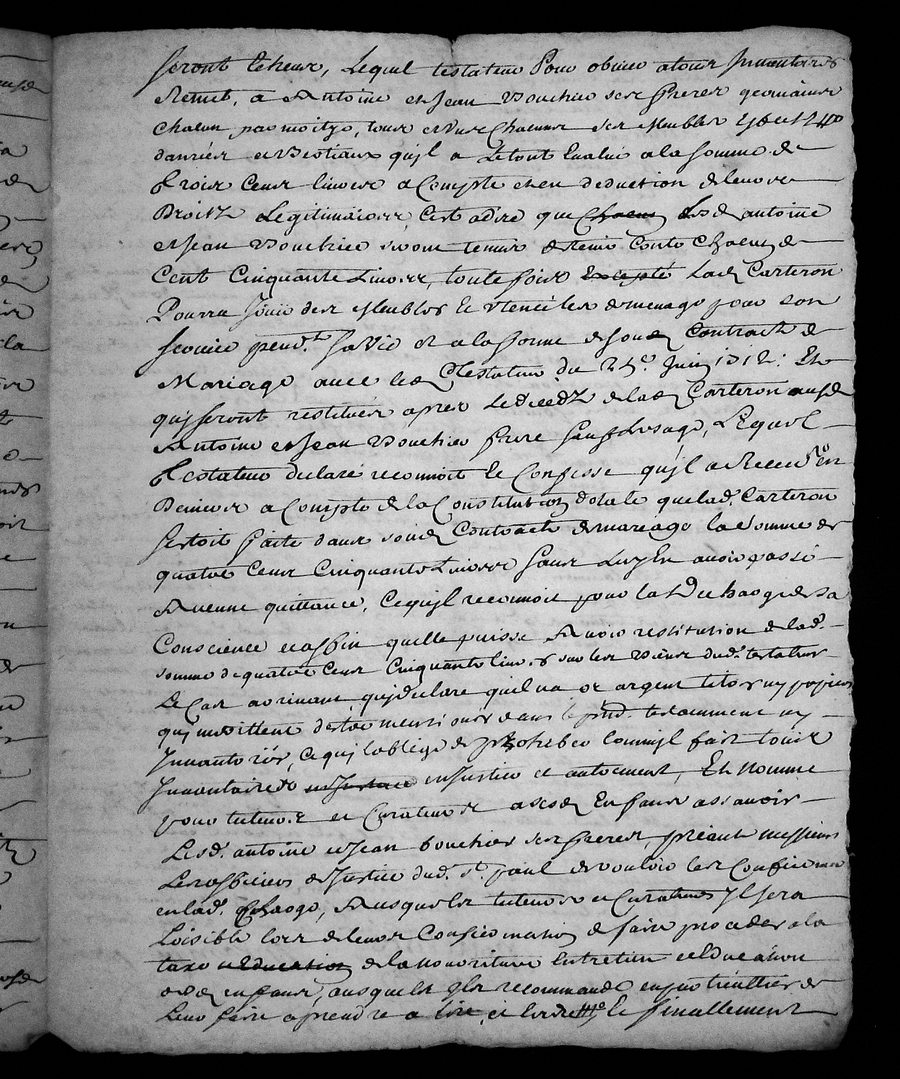 seront tcheux, Lequel testateur Pour obvier a tous Inventaires
Remet, a Antoine et Jean Bouchier ses freres germains
chacun par moitye, tous et uns chacuns ses Meubles
danrées et Bestiaux qu'jl a Letout Evalué a la somme de
trois Cens livres a Compte et en deduction de leurs
Droitz Legitimaires, C'est adire que Chacun Lesd. antoine
et Jean Bouchier seront tenus de tenir Conte Chacun de
Cent Cinquante Livres, toute fois Excepté Lad. Carteron
Pourra Jouir des Meubles et Utencilles de menage pour son
service pend.t sa vie et a la forme de sond. Contract de
Mariage avec led. Testateur du 24e. Juin 1712: Et
quj seront restitués apres Le deced de lad. Carteron ausd.
Antoine et Jean Bouchier frere sauf Lusage, Lequel
Testateur declare reconnoit et Confesse qu'jl a Receu en
Deniers a Compte de la Constitution dotale que lad. Carteron
sestoit faite dans sond. Contract de mariage la somme de
quatre Cens Cinquante Livres sans Luy En avoir passé
Aucune quittance, Ce qu'jl reconnoit pour la Decharge de sa
Conscience et affin quelle puisse Avoir restitution de lad.
somme de quatre Cens Cinquante livres sur les Biens dud. testateur
Le Cas arrivant, quj declare quil na or argent titres ny papiers
quj meritent destre mentionés dans le pnt. testament ny
Inventoriés, ce quj loblige de prohiber Comme jl fait tous
Inventaires en Justice en Justice et autrement, Et Nomme
pour tuteurs et Curateurs a sesd. Enfans assavoir
Lesd. antoine et Jean bouchier ses freres, priant messieurs
Les officiers de Justice dud. st paul de vouloir les Confirmer
en lad. Charge, Ausquels tuteurs et Curateurs Jl sera
Loisible lors de leurs Confirmation de faire proceder a la
taxe Education de la nourriture Entretien et Education
desd. enfans, ausquels jl recommande en particullier de
Leur faire aprendre a lire, et Ecrire, Et finallement